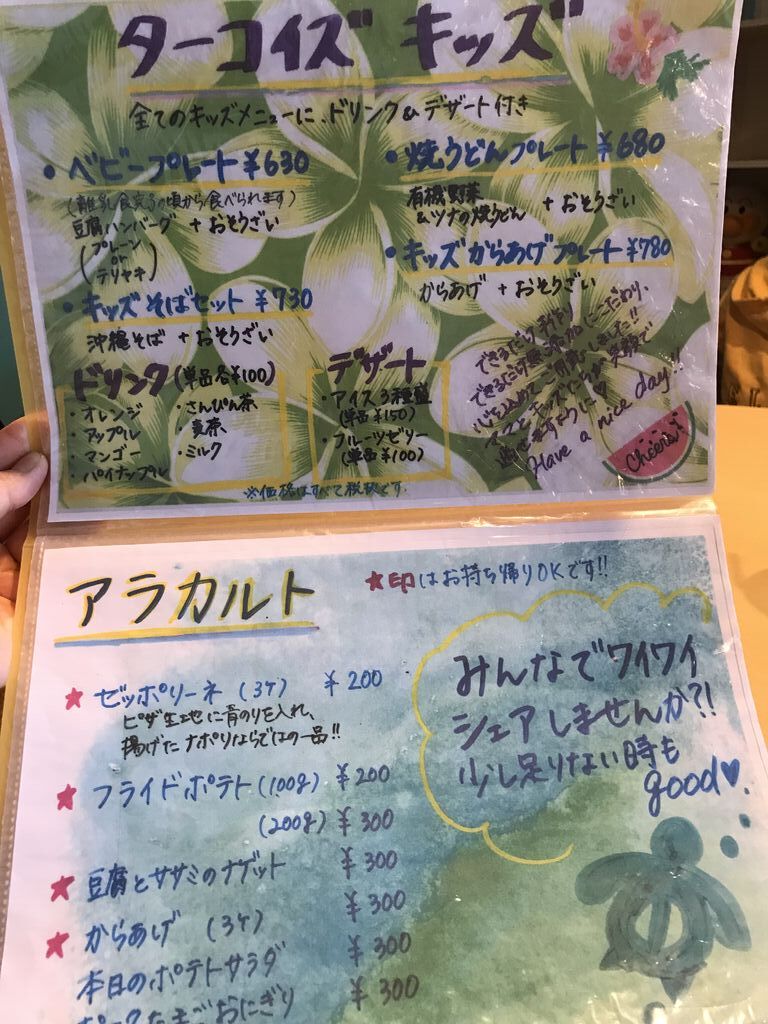 ターコイズ キッズ
全てのキッズメニューに、ドリンク&デザート付き
・ベビープレート ¥630
(離乳食完了の頃から食べられます)
豆腐ハンバーグ + おそうざい
(プレーン
or
テリヤキ)
・キッズそばセット ¥730
沖縄そば + おそうざい
・焼うどんプレート ¥680
有機野菜
&ツナの焼うどん + おそうざい
・キッズからあげプレート ¥780
からあげ + おそうざい
ドリンク (単品各¥100)
・オレンジ
・アップル
・マンゴー
・パイナップル
・さんぴん茶
・麦茶
・ミルク
デザート
・アイス3種盛
(単品¥150)
・フルーツゼリー
(単品¥100)
できるだけ手作り
できるだけ無添加にこだわり、
心を込めてご用意しました!!
ママとキッズたちが笑顔で
過せますように♡
Have a nice day!!
Cheers!
※価格はすべて税抜です。
アラカルト
★印はお持ち帰りOKです!!
★ ゼッポリーネ (3ケ) ¥200
ピザ生地に青のりを入れ、
揚げたナポリならではの一品!!
★ フライドポテト(100g) ¥200
(200g) ¥300
★ 豆腐とササミのナゲット ¥300
★ からあげ (3ケ) ¥300
本日のポテトサラダ ¥300
ポークたまごおにぎり ¥300
みんなでワイワイ
シェアしませんか?!
少し足りない時も
good♡.